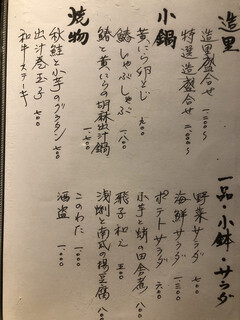 造里
造里盛合せ 一.二〇〇〜
特選造盛合せ 二.〇〇〇〜
小鍋
黄にら卵とじ 九〇〇
鱧しゃぶしゃぶ 一.八〇〇
鱧と黄にらの胡麻出汁鍋 一.七〇〇
焼物
秋鮭と小芋のグラタン 七〇〇
出汁巻玉子 七〇〇
和牛ステーキ
一品・小鉢・サラダ
野菜サラダ 七〇〇
海鮮サラダ 一.〇〇〇
ポテトサラダ 六〇〇
小芋と蛸の田舎煮 八〇〇
飛子和え 五〇〇
浅蜊と南瓜の揚豆腐 八〇〇
このわた 一.〇〇〇
酒盗 一.〇〇〇